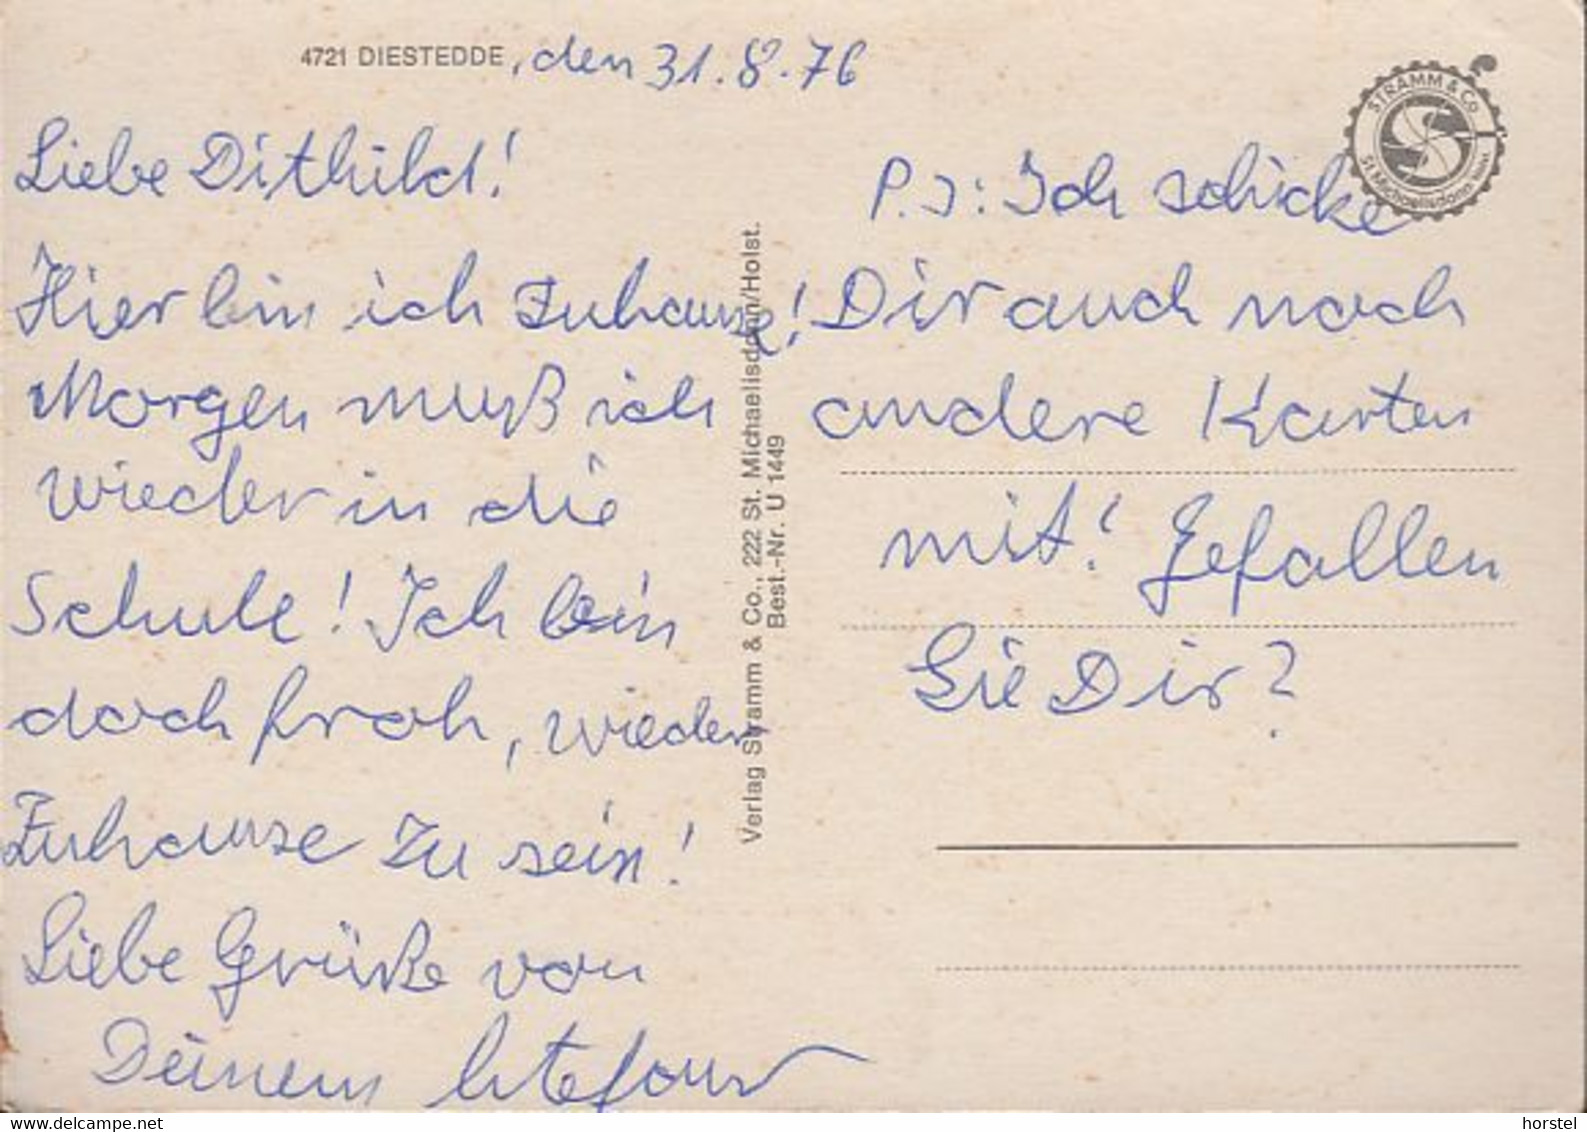 4721 DIESTEDDE, den 31.8.76
Liebe Dithild!
Hier bin ich Zuhause!
Morgen muß ich
wieder in die
Schule! Ich bin
doch froh, wieder
Zuhause zu sein!
Liebe Grüße von
Deinem
P.S: Ich schicke
Dir auch noch
andere Karten
mit! Gefallen
Sie Dir?
Verlag Stramm & Co., 222 St. Michaelisdonn/Holst.
Best.-Nr. U 1449
STRAMM & Co
St. Michaelisdonn
horstel
www.delcampe.net